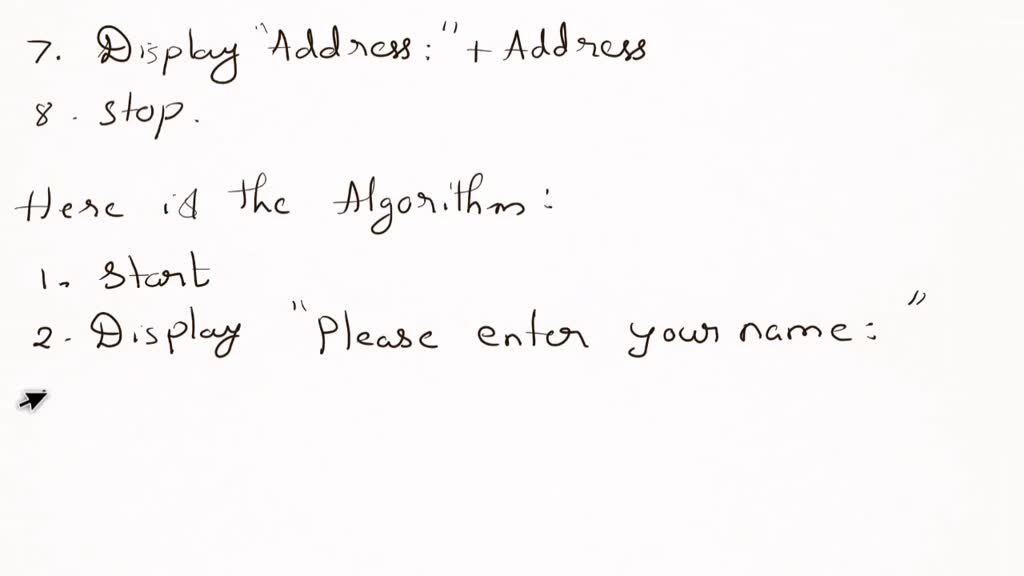 7. Display "Address:" + Address
8. Stop.
Here is the Algorithm:
1. Start
2. Display "Please enter your name: "